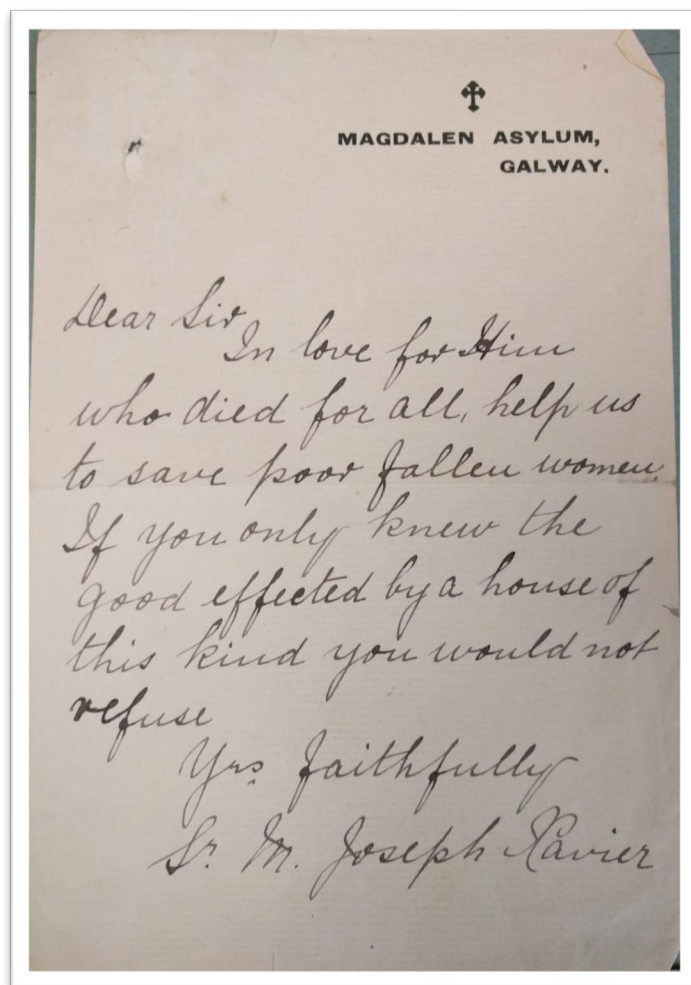 MAGDALEN ASYLUM,
GALWAY.
Dear Sir
In love for Him
who died for all, help us
to save poor fallen women.
If you only knew the
good effected by a house of
this kind you would not
refuse
Yrs. faithfully
Sr. M. Joseph Xavier